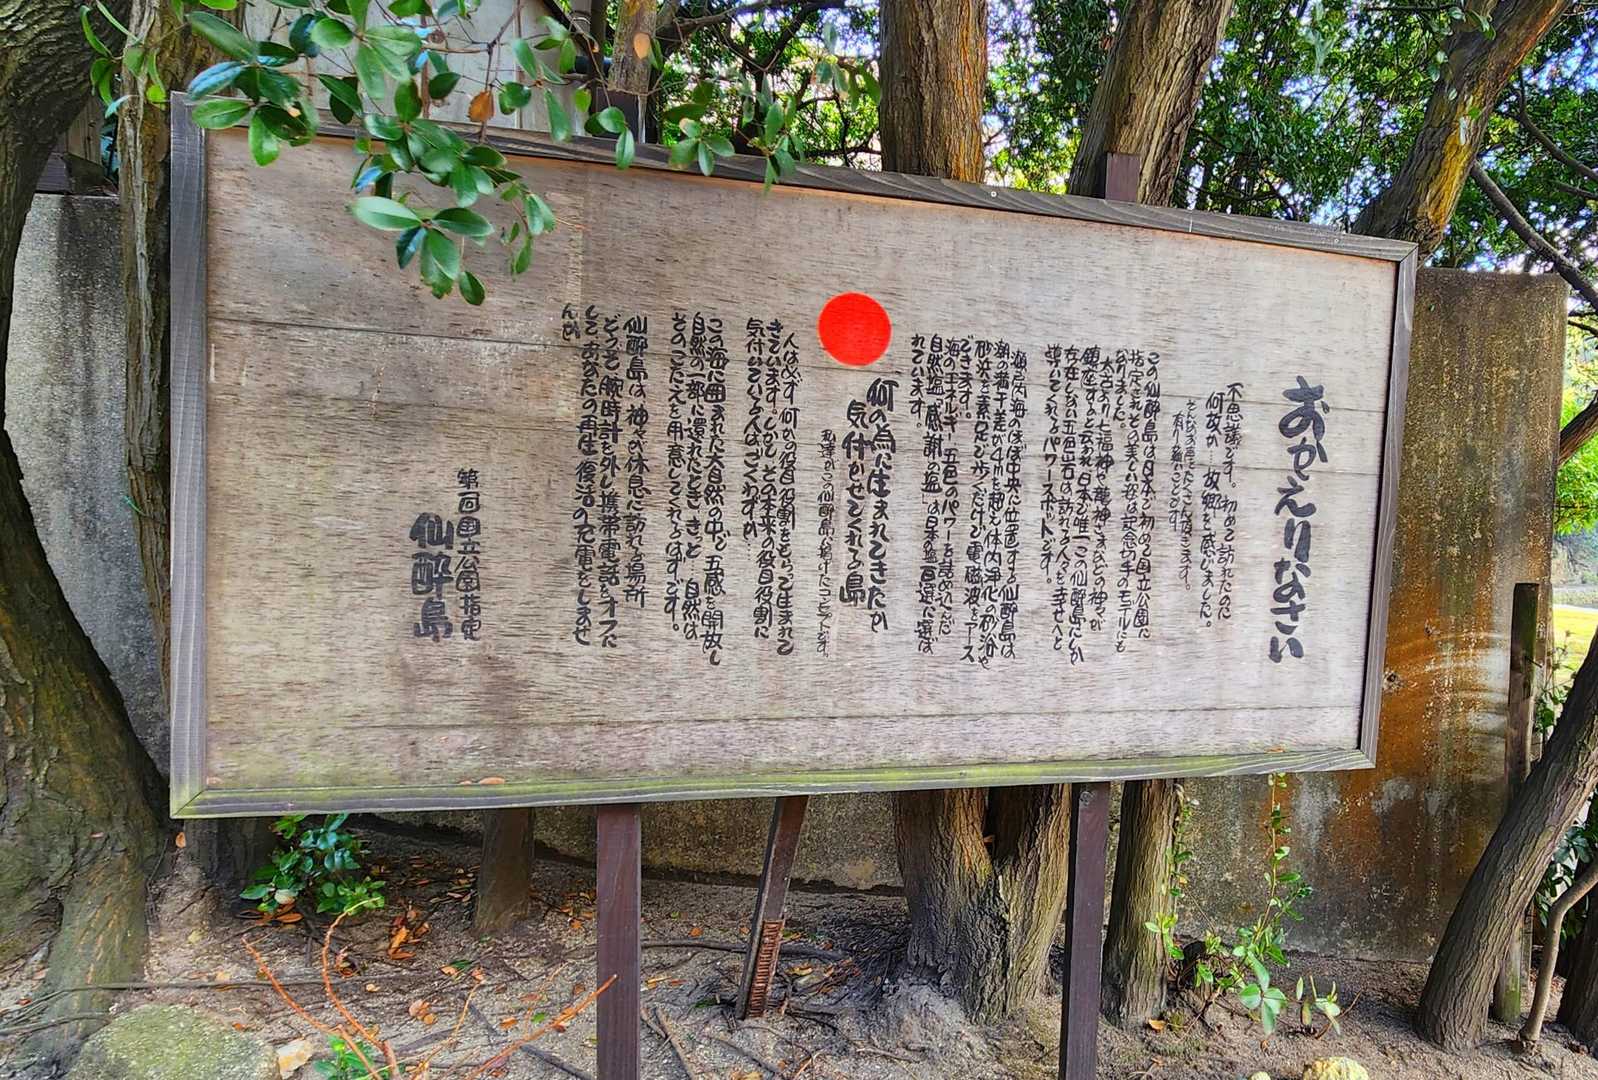 おかえりなさい
不思議です。初めて訪れたのに
何故か…故郷を感じました。
そんなお声をたくさん頂きます。
有り難いことです。
この仙酔島は日本で初めて国立公園に
指定されその美しい姿は記念切手のモデルにも
なりました。
太古より七福神や龍神さまなどの神々が
鎮座すると云われ日本で唯一この仙酔島にしか
存在しない五色岩は訪れる人々を幸せへと
導いてくれるパワースポットです。
瀬戸内海のほぼ中央に位置する仙酔島は
潮の満干差が4mを超え体内浄化の砂浴や
砂浜を素足で歩くだけで電磁波をアース
できます！
海のエネルギー五色のパワーを詰め込んだ
自然塩「感謝の塩」は日本の塩百選に選ば
れています。
何の為に生まれてきたか
気付かせてくれる島
私達がこの仙酔島へ掲げたコピーです。
人は必ず何か役目役割をもらって生まれて
きています。しかしその本来の役目役割に
気付いている人はごくわずか…
この海に囲まれた大自然の中で五感を開放し
自然の一部に還れたとき きっと 自然は
そのこたえを用意してくれるはずです。
仙酔島は神々が休息に訪れる場所
どうぞ腕時計を外し携帯電話をオフに
してあなたの再生 復活の充電をしませ
んか
第一回国立公園指定
仙酔島